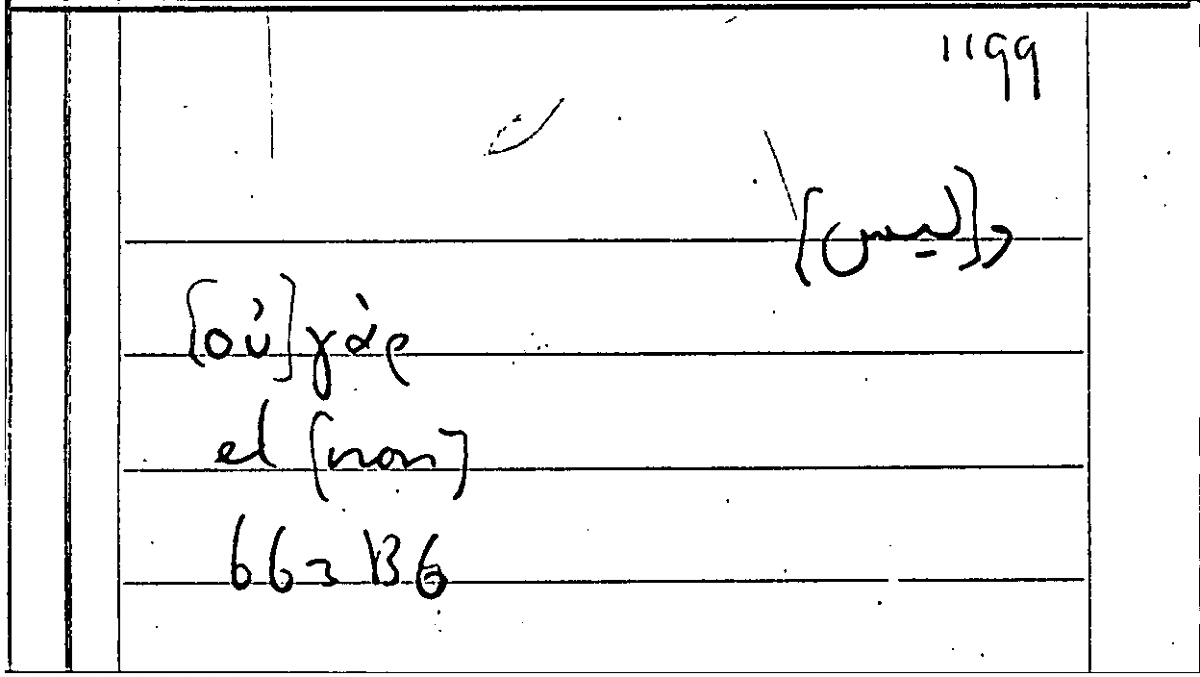 1199
و[ليس]
[οὐ] γὰρ
el [non]
663 B6